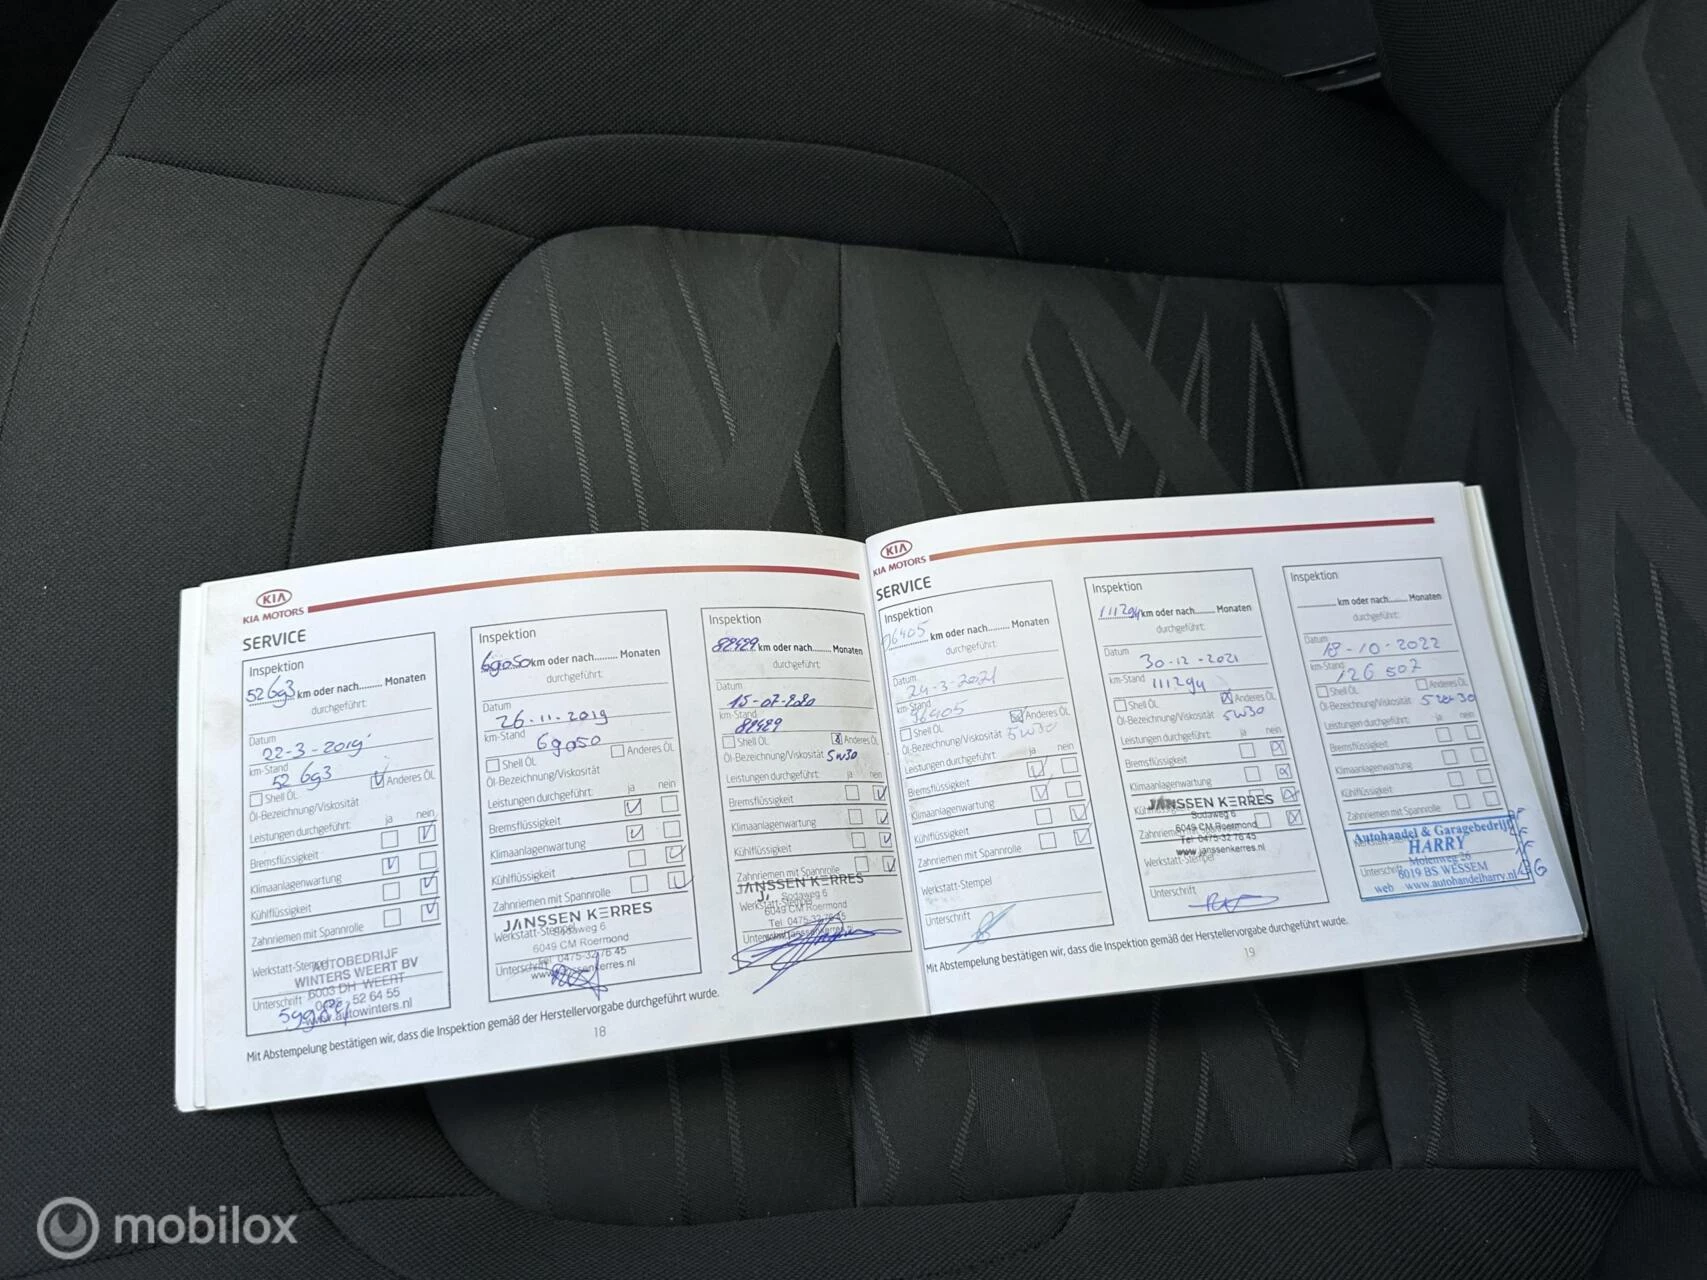 KIA
KIA MOTORS
SERVICE
Inspektion
52693 km oder nach......... Monaten
durchgeführt:
Datum
22-3-2019
km-Stand
52693
Shell ÖL
Anderes ÖL
Öl-Bezeichnung/Viskosität
Leistungen durchgeführt: ja nein
Bremsflüssigkeit
Klimaanlagenwartung
Kühlflüssigkeit
Zahnriemen mit Spannrolle
Werkstatt-Stempel
AUTOBEDRIJF
WINTERS WEERT BV
6003 DH WEERT
52 64 55
www.autowinters.nl
Unterschrift
Inspektion
69050 km oder nach......... Monaten
durchgeführt:
Datum
26-11-2019
km-Stand
69050
Shell ÖL
Anderes ÖL
Öl-Bezeichnung/Viskosität
Leistungen durchgeführt: ja nein
Bremsflüssigkeit
Klimaanlagenwartung
Kühlflüssigkeit
Zahnriemen mit Spannrolle
JANSSEN KERRES
Werkstatt-Stempel
Sodaweg 6
6049 CM Roermond
Tel 0475-32 76 45
Unterschrift
Inspektion
82429 km oder nach......... Monaten
durchgeführt:
Datum
15-07-2020
km-Stand
82429
Shell ÖL
Anderes ÖL
Öl-Bezeichnung/Viskosität 5W30
Leistungen durchgeführt: ja nein
Bremsflüssigkeit
Klimaanlagenwartung
Kühlflüssigkeit
Zahnriemen mit Spannrolle
JANSSEN KERRES
Sodaweg 6
6049 CM Roermond
Tel. 0475-32 76 45
Mit Abstempelung bestätigen wir, dass die Inspektion gemäß der Herstellervorgabe durchgeführt wurde.
18
KIA
KIA MOTORS
SERVICE
Inspektion
96405 km oder nach......... Monaten
durchgeführt:
Datum
24-3-2021
km-Stand
96405
Shell ÖL
Anderes ÖL
Öl-Bezeichnung/Viskosität 5W30
Leistungen durchgeführt: ja nein
Bremsflüssigkeit
Klimaanlagenwartung
Kühlflüssigkeit
Zahnriemen mit Spannrolle
Werkstatt-Stempel
Unterschrift
Inspektion
111294 km oder nach......... Monaten
durchgeführt:
Datum
30-12-2021
km-Stand
111294
Shell ÖL
Anderes ÖL
Öl-Bezeichnung/Viskosität 5W30
Leistungen durchgeführt: ja nein
Bremsflüssigkeit
Klimaanlagenwartung
JANSSEN KERRES
Sodaweg 6
6049 CM Roermond
Tel 0475-32 76 45
www.janssenkerres.nl
Werkstatt-Stempel
Unterschrift
Inspektion
......... km oder nach......... Monaten
durchgeführt:
Datum
18-10-2022
km-Stand
126 507
Shell ÖL
Anderes ÖL
Öl-Bezeichnung/Viskosität
Leistungen durchgeführt: ja nein
Bremsflüssigkeit
Klimaanlagenwartung
Kühlflüssigkeit
Zahnriemen mit Spannrolle
Autohandel & Garagebedrijf
HARRY
Molenweg 26
6019 BS WESSEM
web www.autohandelharry.nl
Mit Abstempelung bestätigen wir, dass die Inspektion gemäß der Herstellervorgabe durchgeführt wurde.
19
mobilox